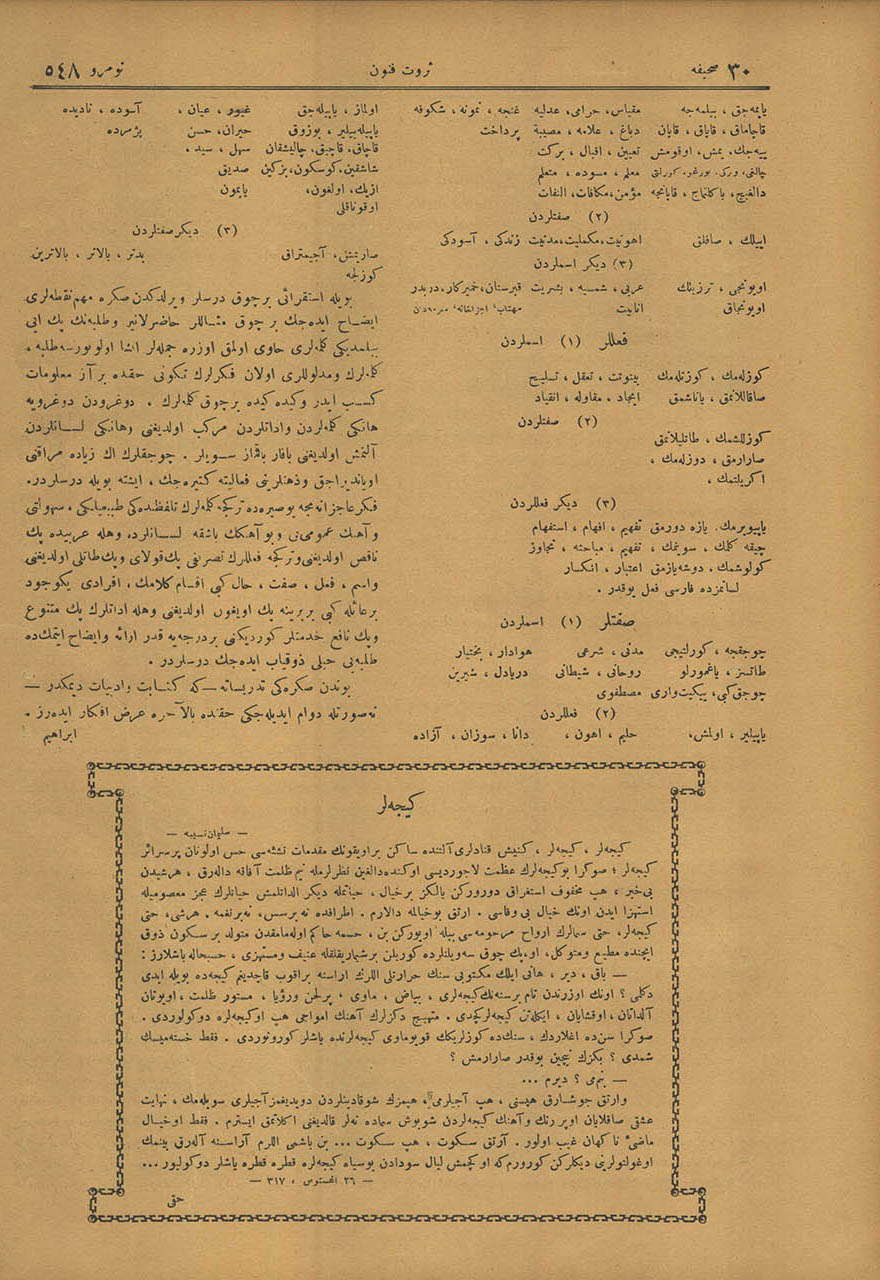 ٣٠ صحیفه
ثروت فنون
نومرو ٥٤٨
یاپمه‌جق ، بیلمه‌جه مقیاس، حرامی، عدلیه غنجه ، نمونه ، شکوفه
قاچاماق ، قایاق ، قاپان دباغ ، علامه ، مصیبة پرداخت
ییه‌جك، یمش، اوقومش تعیین ، اقبال ، برکت
چالغی ، ورکی، بورغو، کورلتی معلم ، مسوده ، متعلم
دالغیچ، یاکلتماج ، قاپانجه مؤمن، مکافات، التفات
(٢) صفتلردن
اییلك ، صاغلق اهونیت، مکملیت، مدنیت زندکی ، آسودکی
(٣) دیکر اسملردن
اویونجی ، ترزیلك عربی ، شمسیه ، بشریت قبرستان، خمیرکار، دربدر
اویونجاق انانیت مهتاب، اجزاخانه،
فعللر (١) اسملردن
کوزله‌مك ، کوزتله‌مك بینونت ، تعقل ، تسلیح
صاقاللانمق ، یاناشمق ایجاد ، مقاوله ، انقیاد
(٢) صفتلردن
کوزللشمك ، طاتلیلانمق
صارارمق ، دوزله‌مك ،
اکریلتمك ،
(٣) دیکر فعللردن
یاپیویرمك، یازه دورمق تفهیم ، افهام ، استفهام
چیقه کلمك ، سوینمك ، تفهیم ، مباحثه ، تجاوز
کولوشمك ، دوشه‌یازمق اعتبار ، انکسار
لسانمزده فارسی فعل یوقدر .
صفتلر (١) اسملردن
چوجقجه ، کورلتیجی مدنی ، شرعی هوادار ، بختیار
طاتسز ، یاغمورلو روحانی ، شیطانی دریادل ، شیرین
چوجق کبی، ییکیت‌واری مصطفوی
(٢) فعللردن
یاپیلیر ، اولمش، حلیم ، اهون ، دانا ، سوزان ، آزاده
اولماز ، یاپیله‌جق غیور ، عیان ، آسوده ، نادیده
یاپیله‌بیلیر ، بوزوق حیران، حسن پژمرده
قاچاق، قاچیق، چالیشقان سهل ، سید ،
شاشقین، کوسکون، بزکین صدیق
ازیك، اولغون، یاپمون
اوقوناقلی
(٣) دیکر صفتلردن
صاریمتش، آجیمتراق بدتر ، بالاتر ، بالاترین
کوزلجه
بویله استقرائی برچوق درسلر ویرلدکدن صکره مهم نقطه‌لری
ایضاح ایده‌جك برچوق مثاللر حاضرلانیر وطلبه‌نك پك ایی
بیلمدیکی کلمه‌لری حاوی اولمق اوزره جمله‌لر انشا اولونورسه طلبه ،
کلمه‌لرك ومدلوللری اولان فکرلرك تکونی حقنده برآز معلومات
کسب ایدر وکیده کیده برچوق کلمه‌لرك ، دوغرودن دوغرویه
هانکی کلمه‌لردن واداتلردن مرکب اولدیغنی وهانکی لسانلردن
آلنمش اولدیغنی باقار باقماز سویلر . چوجقلرك اك زیاده مراقنی
اویاندیراجق وذهنلرینی فعالیته کتیره‌جك ، ایشته بویله درسلردر.
فکر عاجزانه‌مجه بوصیره‌ده ترکجه کلمه‌لرك تلفظنده‌کی طبیعیلکی ، سهولتی
وآهنك عمومی‌نی وبو آهنکك باشقه لسانلرده، وهله عربیده پك
ناقص اولدیغنی وترکجه فعللرك تصریفی پك قولای وپك طاتلی اولدیغنی
واسم ، فعل ، صفت ، حال کبی اقسام کلامك ، افرادی پکوجود
برعائله کبی بربرینه پك اویغون اولدیغنی وهله اداتلرك پك متنوع
وپك نافع خدمتلر کوردیکنی بردرجه‌یه قدر ارائه وایضاح ایتمك‌ده
طلبه‌یی خیلی ذوقیاب ایده‌جك درسلردر .
بوندن صکره‌کی تدریساته — که کتابت وادبیات دیمکدر —
نه‌صورتله دوام ایدیله‌جکی حقنده بالآخره عرض افکار ایده‌رز .
ابراهیم
کیجه‌لر
— سلیمان نسیبه —
کیجه‌لر ، کیجه‌لر ، کنیش قنادلری آلتنده ساکن براویقونك مقدمات نشئه‌سی حس اولونان پرسرائر
کیجه‌لر ؛ صوکرا بوکیجه‌لرك عظمت لاجوردیسی اوکنده دالغین نظرلرمله نیم ظلمت آفاقه دالەرق ، هرشیدن
بی‌خبر ، هپ مخفوف استغراق دورورکن یالکز برخیال ، حیاتمله دیکر آلداتلمش حیاتلرك عجز معصومیله
استهزا ایدن اونك خیال بی‌وفاسی . ارتق بوخیاله دالارم . اطرافده نه‌برسس، نه‌برنغمه . هرشی، حتی
کیجه‌لر، حتی سمالرك ارواح مرحومه‌سی بیله اویورکن بن ، حسمه حاکم اوله‌مامقدن متولد برسکون ذوق
ایچنده مطیع ومتوکل، او، پك چوق سه‌ویلنلرده کوریلن برشیماریقلقله عنیف ومستهزی ، حسبحاله باشلارز :
— باق ، دیر ، هانی ایلك مکتوبی سنك حرارتلی اللرك اراسنه براقوب قاچدیغم کیجه‌ده بویله ایدی
دکلی ؟ اونك اوزرندن تام برسنه‌نك کیجه‌لری ، بیاض ، ماوی ، پرلحن ورؤیا ، مستور ظلمت ، اویوتان
آلداتان ، اوقشایان ، ایکله‌تن کیجه‌لرکچدی . متهیج دکزلرك آهنك امواجی هپ اوکیجه‌لره دوکولوردی .
صوکرا سن‌ده اغلاردك ، سنك‌ده کوزلریکك قویوماوی کیجه‌لرنده یاشلر کورونوردی . فقط خسته‌میسك
شمدی ؟ بکزك نیچین بوقدر صارارمش ؟
— بنمی ؟ دیرم ...
وارتق جوشارق هپسنی ، هپ آجیلرمی، هپمزك شوقادینلردن دویدیغمز آجیلری سویله‌مك ، نهایت
عشق صاقلایان اوپررنك وآهنك کیجه‌لردن شوبوش سماده نه‌لر قالدیغنی اکلاتمق ایسترم . فقط اوخیال
ماضی ناکهان غیب اولور . آرتق سکوت ، هپ سکوت ... بن باشمی اللرم آراسنه آله‌رق بینمك
اوغولتولرینی دیکلرکن کورورم که اوکچمش لیال سودادن بوسیاه کیجه‌لره قطره قطره یاشلر دوکولیور ...
— ٢٦ اغستوس ، ٣١٧ —
حقی